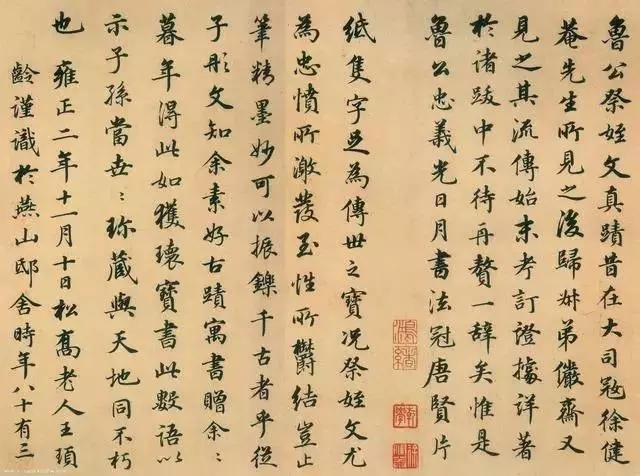 魯公祭姪文真蹟昔在大司寇徐健
菴先生所見之後歸猶弟儼齋又
見之其流傳始末考訂證據詳著
於諸跋中不待再贅一辭矣惟是
魯公忠義光日月書法冠唐賢片
紙隻字足為傳世之寶況祭姪文尤
為忠憤所激發至性所鬱結豈止
筆精墨妙可以振鑠千古者乎從
子彤文知余素好古蹟寓書贈余〻
暮年得此如獲瓌寶書此數語以
示子孫當世〻珍藏與天地同不朽
也雍正二年十一月十日松喬老人王頊
齡謹識於燕山邸舍時年八十有三